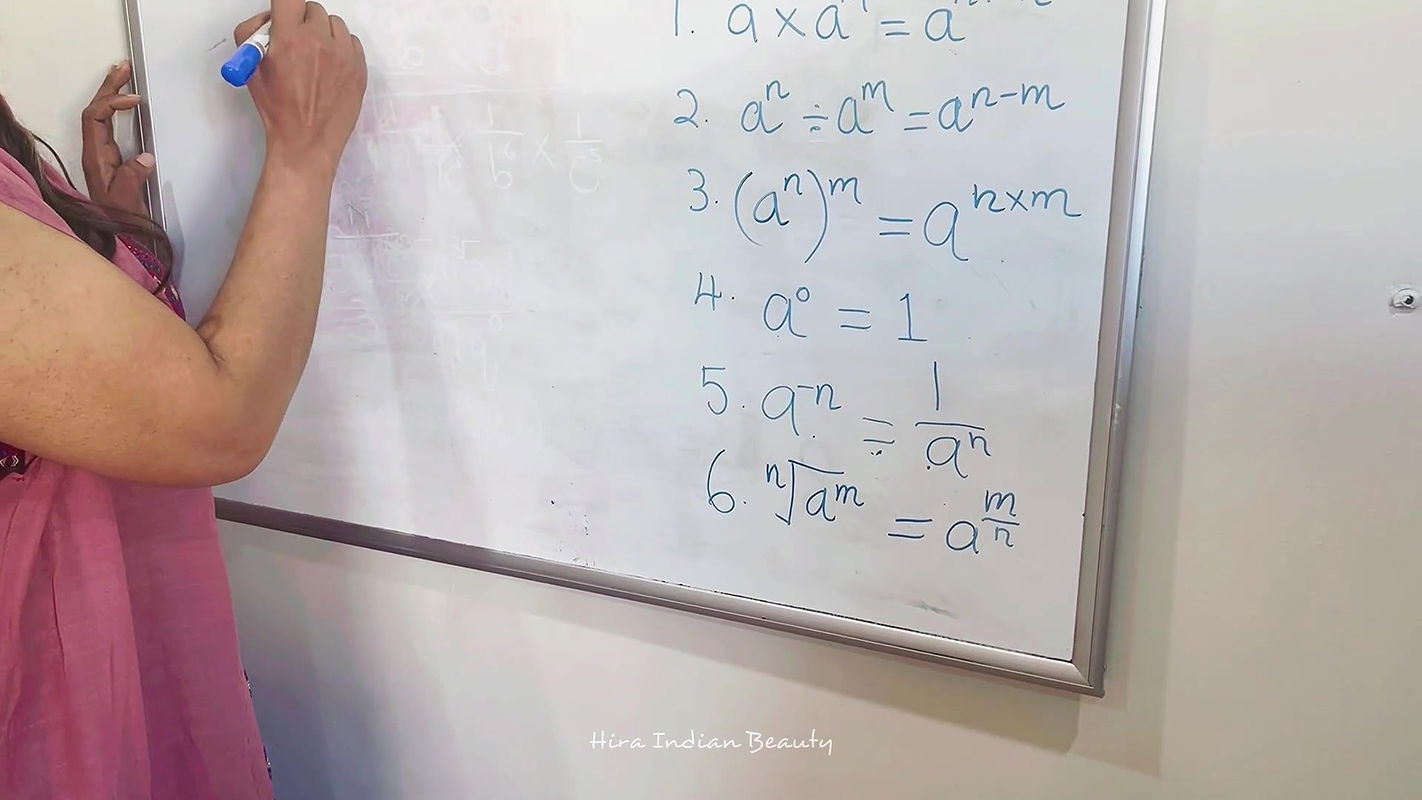 1. a × a = a
2. aⁿ ÷ aᵐ = aⁿ⁻ᵐ
3. (aⁿ)ᵐ = aⁿˣᵐ
4. a⁰ = 1
5. a⁻ⁿ = 1/aⁿ
6. ⁿ√aᵐ = a^(m/n)
1/b⁶ × 1/c⁵
Hira Indian Beauty